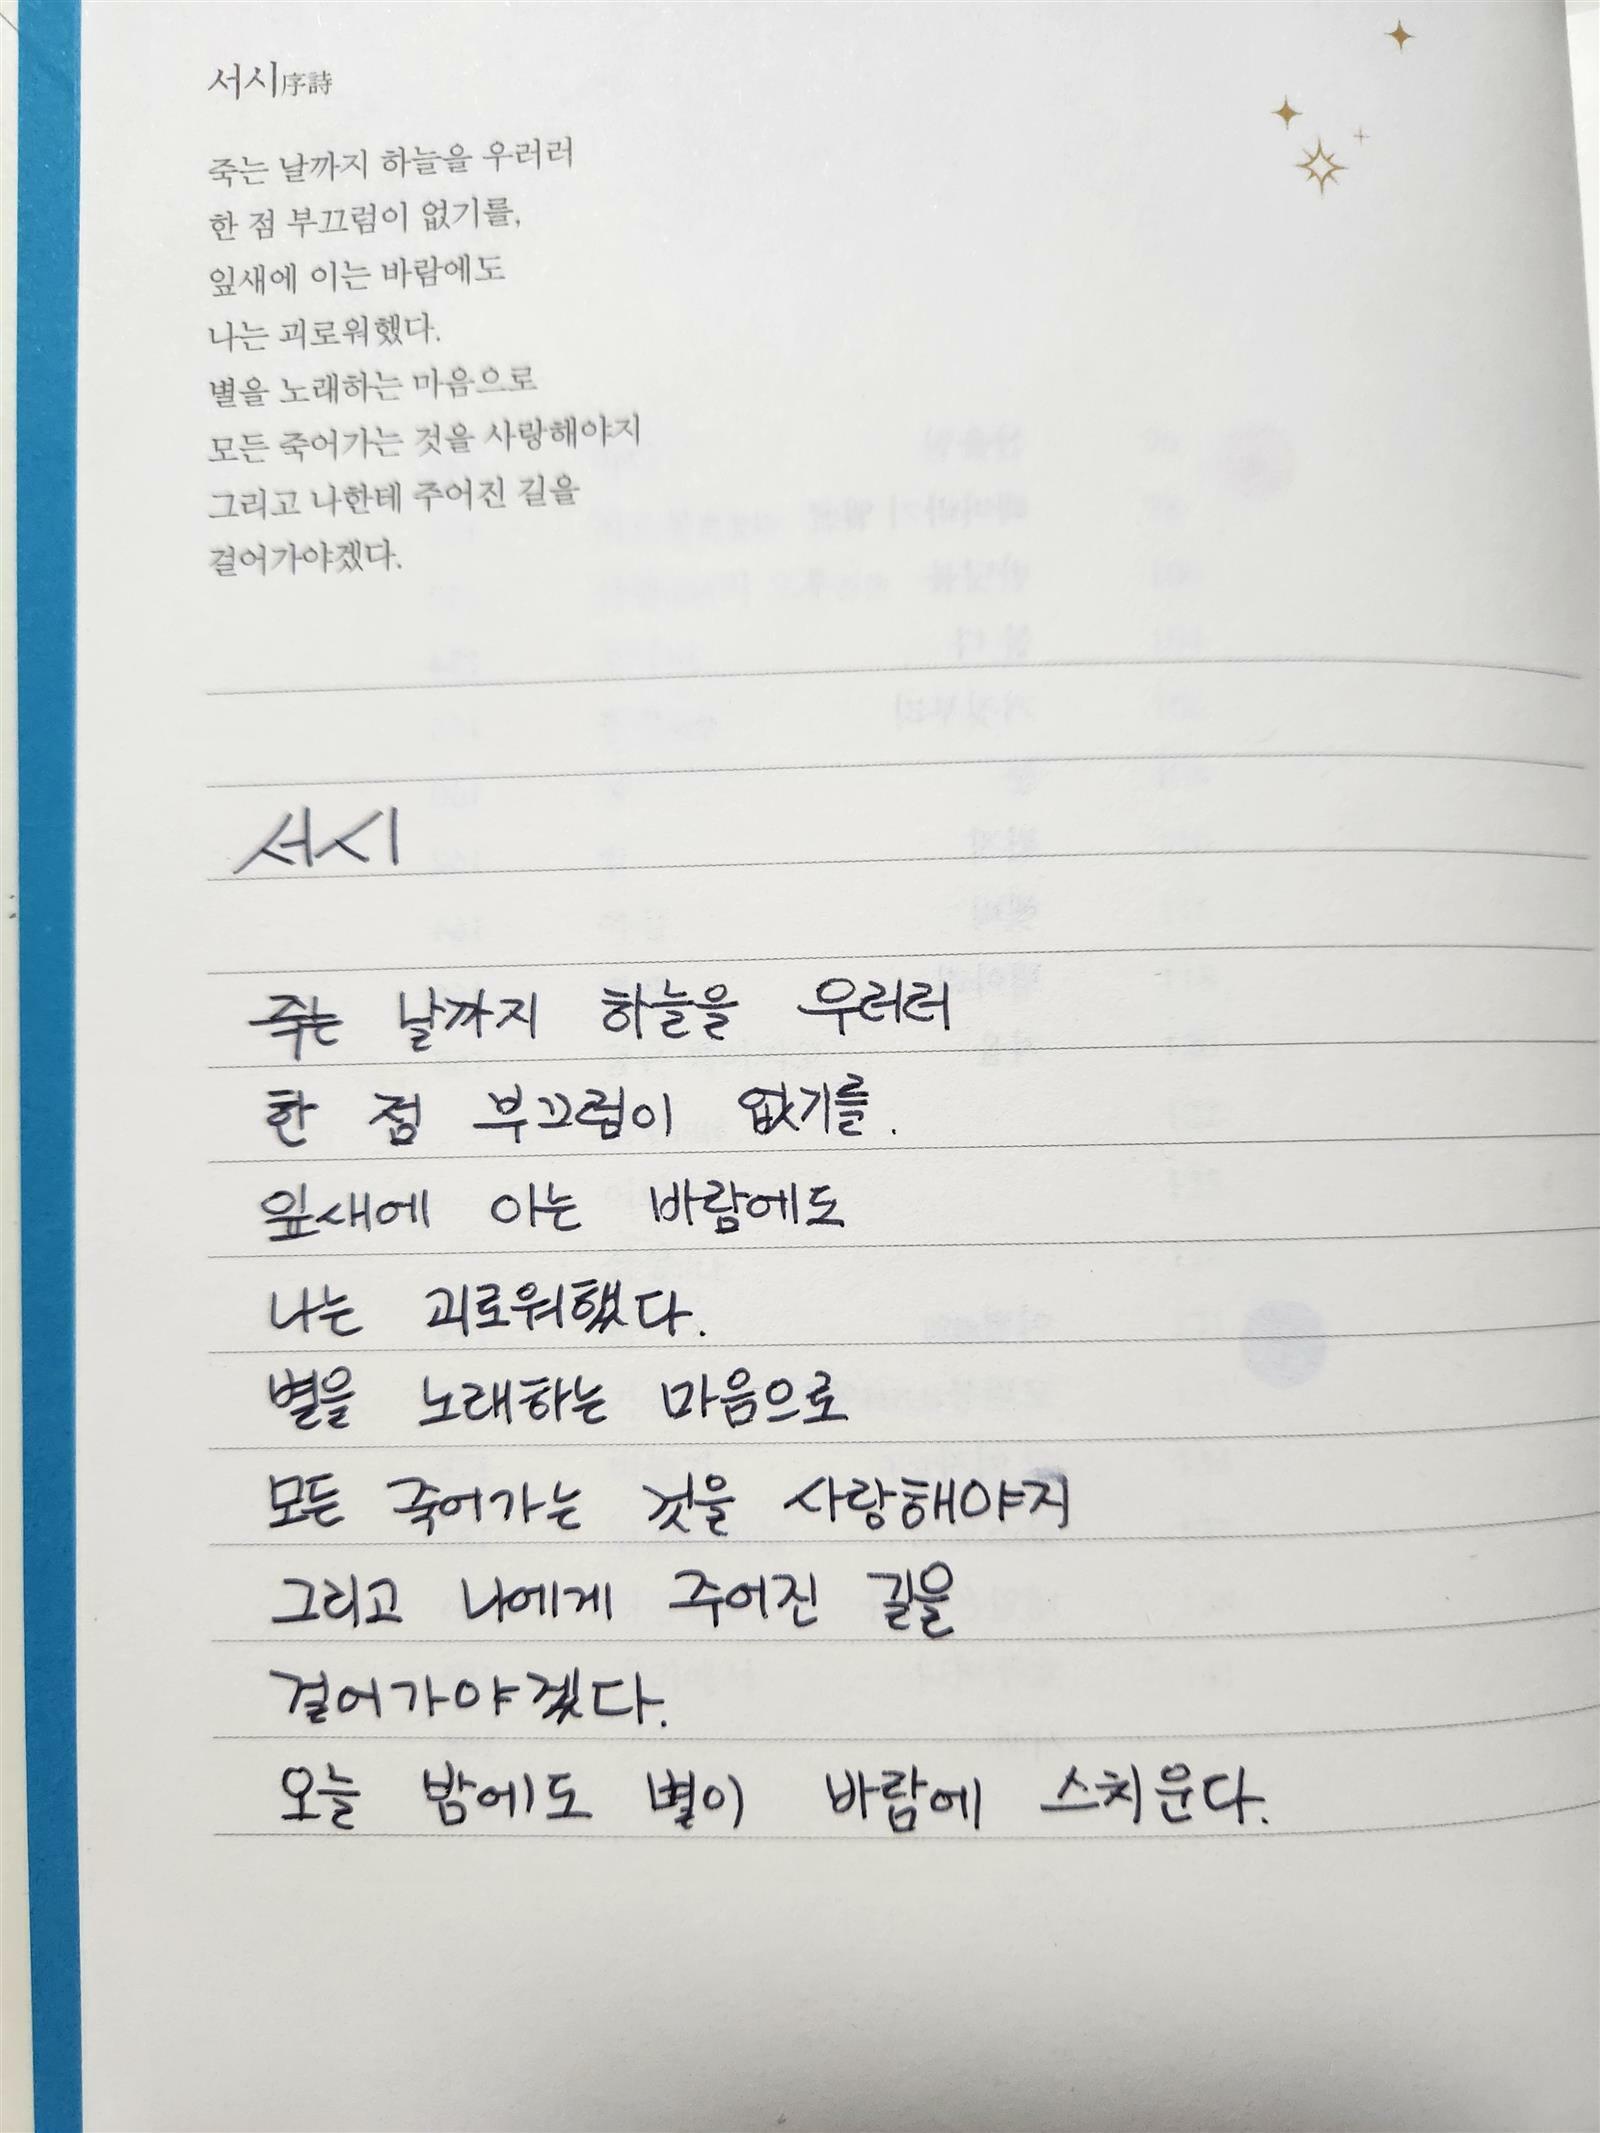 서시序詩
죽는 날까지 하늘을 우러러
한 점 부끄럼이 없기를,
잎새에 이는 바람에도
나는 괴로워했다.
별을 노래하는 마음으로
모든 죽어가는 것을 사랑해야지
그리고 나한테 주어진 길을
걸어가야겠다.
서시
죽는 날까지 하늘을 우러러
한 점 부끄럼이 없기를.
잎새에 이는 바람에도
나는 괴로워했다.
별을 노래하는 마음으로
모든 죽어가는 것을 사랑해야지
그리고 나에게 주어진 길을
걸어가야겠다.
오늘 밤에도 별이 바람에 스치운다.